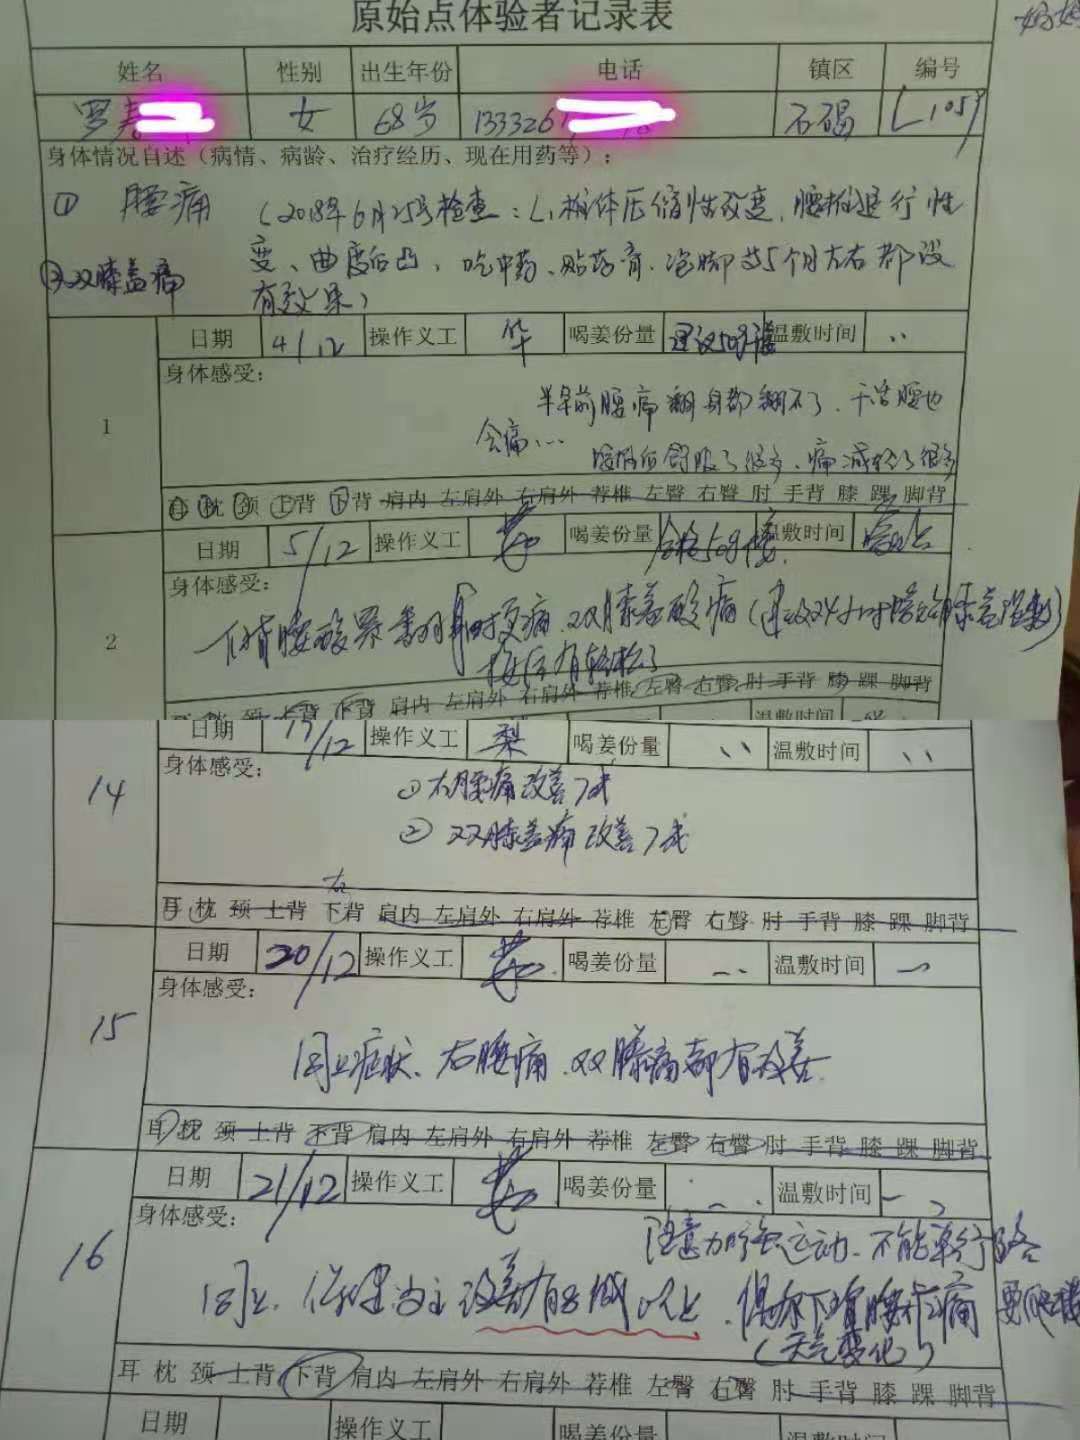 原始点体验者记录表
姓名 性别 出生年份 电话 镇区 编号
罗 女 68岁 1333261 石碣 L1059
身体情况自述（病情、病龄、治疗经历、现在用药等）：
① 腰痛 （2018年6月25号检查：L1椎体压缩性改变，腰椎退行性
②双膝盖痛 变、曲度后凸，吃中药、贴药膏、泡脚 5个月左右都没
有效果）
日期 4/12 操作义工 华 喝姜份量 建议50g 温敷时间
身体感受：
1
年前腰痛翻身都翻不了，干活腰也
会痛…
按后舒服了很多，痛减轻了很多
耳 枕 颈 上背 下背 肩内 左肩外 右肩外 荐椎 左臀 右臀 肘 手背 膝 踝 脚背
日期 5/12 操作义工 喝姜份量 50g 温敷时间
身体感受：
2
腰酸累 翻身时更痛，双膝盖酸痛（建议24小时 膝盖温敷）
按后有轻松了
耳 枕 颈 上背 下背 肩内 左肩外 右肩外 荐椎 左臀 右臀 肘 手背 膝 踝 脚背
日期 19/12 操作义工 梨 喝姜份量 温敷时间
身体感受：
14
①右腰痛改善7成
②双膝盖痛改善7成
右
耳 枕 颈 上背 下背 肩内 左肩外 右肩外 荐椎 左臀 右臀 肘 手背 膝 踝 脚背
日期 20/12 操作义工 喝姜份量 温敷时间
身体感受：
15
同上症状、右腰痛、双膝痛都有改善
耳 枕 颈 上背 下背 肩内 左肩外 右肩外 荐椎 左臀 右臀 肘 手背 膝 踝 脚背
日期 21/12 操作义工 喝姜份量 温敷时间
身体感受：
注意加强运动、不能单行路
16
同上、 改善有8成以上，偶尔下背腰 痛 要爬楼
（天气变化）
耳 枕 颈 上背 下背 肩内 左肩外 右肩外 荐椎 左臀 右臀 肘 手背 膝 踝 脚背
日期 操作义工 喝姜份量 温敷时间